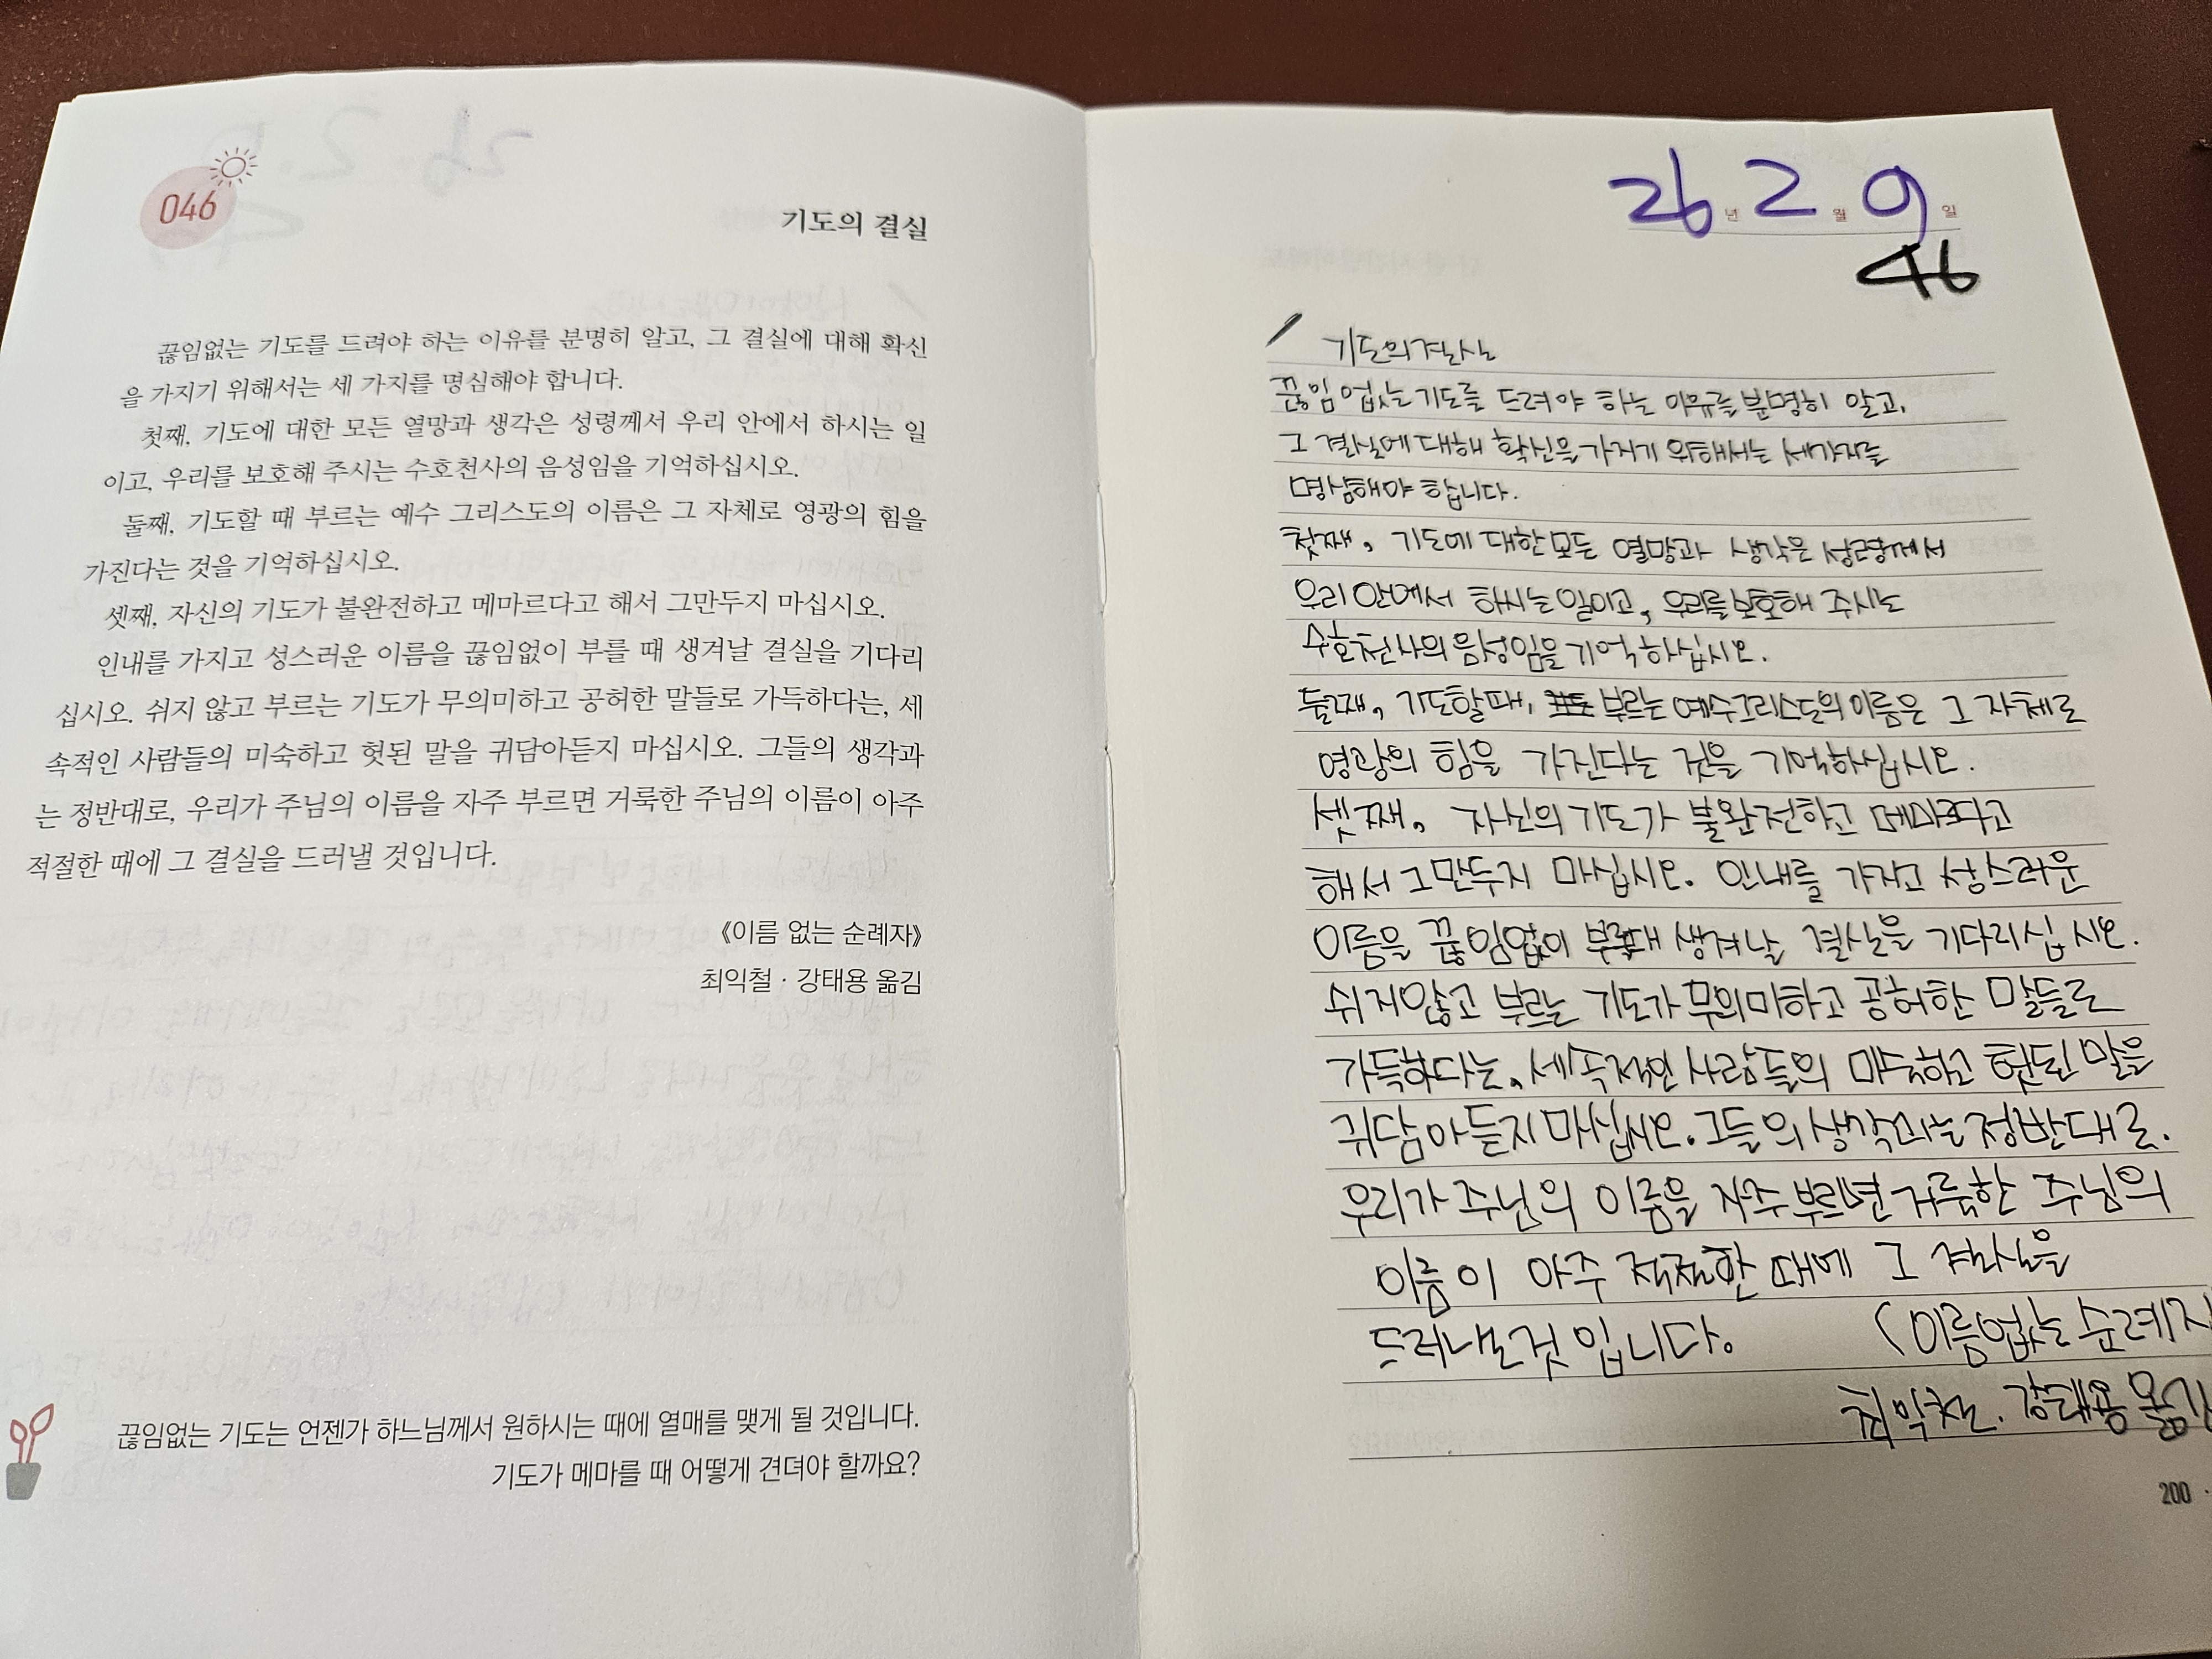 046
기도의 결실
끊임없는 기도를 드려야 하는 이유를 분명히 알고, 그 결실에 대해 확신
을 가지기 위해서는 세 가지를 명심해야 합니다.
첫째, 기도에 대한 모든 열망과 생각은 성령께서 우리 안에서 하시는 일
이고, 우리를 보호해 주시는 수호천사의 음성임을 기억하십시오.
둘째, 기도할 때 부르는 예수 그리스도의 이름은 그 자체로 영광의 힘을
가진다는 것을 기억하십시오.
셋째, 자신의 기도가 불완전하고 메마르다고 해서 그만두지 마십시오.
인내를 가지고 성스러운 이름을 끊임없이 부를 때 생겨날 결실을 기다리
십시오. 쉬지 않고 부르는 기도가 무의미하고 공허한 말들로 가득하다는, 세
속적인 사람들의 미숙하고 헛된 말을 귀담아듣지 마십시오. 그들의 생각과
는 정반대로, 우리가 주님의 이름을 자주 부르면 거룩한 주님의 이름이 아주
적절한 때에 그 결실을 드러낼 것입니다.
《이름 없는 순례자》
최익철 · 강태용 옮김
끊임없는 기도는 언젠가 하느님께서 원하시는 때에 열매를 맺게 될 것입니다.
기도가 메마를 때 어떻게 견뎌야 할까요?
26년 2월 9일
46
기도의 결실
끊임 없는 기도를 드려야 하는 이유를 분명히 알고,
그 결실에 대해 확신을 가지기 위해서는 세가지를
명심해야 합니다.
첫째, 기도에 대한 모든 열망과 생각은 성령께서
우리 안에서 하시는 일이고, 우리를 보호해 주시는
수호천사의 음성임을 기억하십시오.
둘째, 기도할때, 부르는 예수그리스도의 이름은 그 자체로
영광의 힘을 가진다는 것을 기억하십시오.
셋째, 자신의 기도가 불완전하고 메마르다고
해서 그만두지 마십시오. 인내를 가지고 성스러운
이름을 끊임없이 부를때 생겨날 결실을 기다리십시오.
쉬지않고 부르는 기도가 무의미하고 공허한 말들로
가득하다는, 세속적인 사람들의 미숙하고 헛된 말을
귀담아듣지 마십시오. 그들의 생각과는 정반대로.
우리가 주님의 이름을 자주 부르면 거룩한 주님의
이름이 아주 적절한 때에 그 결실을
드러낼것 입니다. (이름없는 순례자
최익철. 강태용 옮김
200